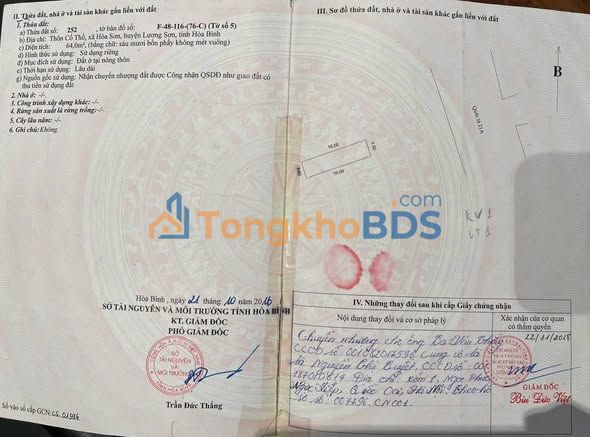 II. Thửa đất, nhà ở và tài sản khác gắn liền với đất
1. Thửa đất:
a) Thửa đất số: 252 , tờ bản đồ số: F-48-116-(76-C) (Tờ số 5)
b) Địa chỉ: Thôn Cố Thổ, xã Hòa Sơn, huyện Lương Sơn, tỉnh Hòa Bình
c) Diện tích: 64,0m², (bằng chữ: sáu mươi bốn phẩy không mét vuông)
d) Hình thức sử dụng: Sử dụng riêng
đ) Mục đích sử dụng: Đất ở tại nông thôn
e) Thời hạn sử dụng: Lâu dài
g) Nguồn gốc sử dụng: Nhận chuyển nhượng đất được Công nhận QSDĐ như giao đất có
thu tiền sử dụng đất
2. Nhà ở: -/-
3. Công trình xây dựng khác: -/-
4. Rừng sản xuất là rừng trồng: -/-
5. Cây lâu năm: -/-
6. Ghi chú: Không.
Hòa Bình , ngày 21 tháng 10 năm 2016
SỞ TÀI NGUYÊN VÀ MÔI TRƯỜNG TỈNH HÒA BÌNH
KT. GIÁM ĐỐC
PHÓ GIÁM ĐỐC
SỞ
TÀI NGUYÊN
VÀ
MÔI TRƯỜNG
Trần Đức Thắng
Số vào sổ cấp GCN:
III. Sơ đồ thửa đất, nhà ở và tài sản khác gắn liền với đất
B
Quốc lộ 21A
16.00
4.00
4.00
16.00
KV1
VT1
TongkhoBDS.com
IV. Những thay đổi sau khi cấp Giấy chứng nhận
Nội dung thay đổi và cơ sở pháp lý
Xác nhận của cơ quan
có thẩm quyền
Chuyển nhượng cho ông Văn
CCCD số: 001082014596 Cùng vợ là
bà Nguyễn Thị CCCD số: 001
Địa chỉ: Xóm 1, Ngọc Phúc
Ngọc Hiệp, Quốc Oai, Hà Nội. Theo hồ
sơ số: 007796.CN001.
22/11/2018
GIÁM ĐỐC
Bùi Đức Việt